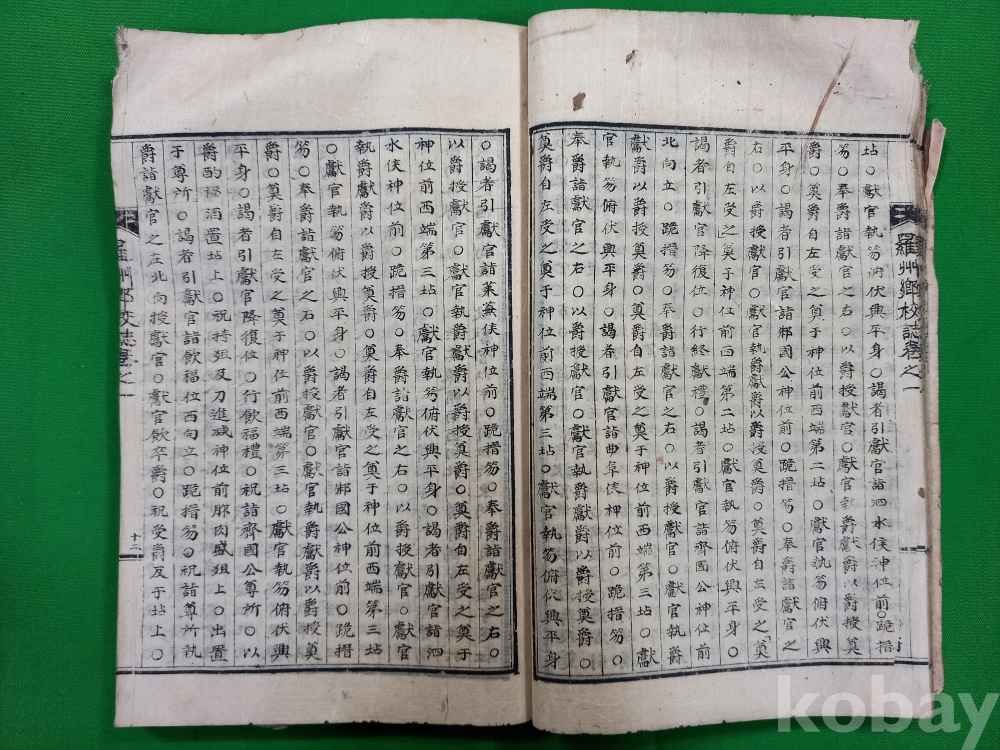 坫○獻官執笏俯伏興平身○謁者引獻官詣泗水侯神位前○跪搢
笏○奉爵詣獻官之右○以爵授獻官○獻官執爵獻爵以爵授奠
爵○奠爵自左受之奠于神位前西端第二坫○獻官執笏俯伏興
平身○謁者引獻官詣邾國公神位前○跪搢笏○奉爵詣獻官之
右○以爵授獻官○獻官執爵獻爵以爵授奠爵○奠爵自左受之奠
爵自左受之奠于神位前西端第二坫○獻官執笏俯伏興平身○
謁者引獻官降復位○行終獻禮○謁者引獻官詣齊國公神位前
北向立○跪搢笏○奉爵詣獻官之右○以爵授獻官○獻官執爵
獻爵以爵授奠爵○奠爵自左受之奠于神位前西端第三坫○獻
官執笏俯伏興平身○謁者引獻官詣曲阜侯神位前○跪搢笏○
奉爵詣獻官之右○以爵授獻官○獻官執爵獻爵以爵授奠爵○
奠爵自左受之奠于神位前西端第三坫○獻官執笏俯伏興平身
羅州鄕校誌卷之一
○謁者引獻官詣萊蕪侯神位前○跪搢笏○奉爵詣獻官之右○
以爵授獻官○獻官執爵獻爵以爵授奠爵○奠爵自左受之奠于
神位前西端第三坫○獻官執笏俯伏興平身○謁者引獻官詣泗
水侯神位前○跪搢笏○奉爵詣獻官之右○以爵授獻官○獻官
執爵獻爵以爵授奠爵○奠爵自左受之奠于神位前西端第三坫
○獻官執笏俯伏興平身○謁者引獻官詣邾國公神位前○跪搢
笏○奉爵詣獻官之右○以爵授獻官○獻官執爵獻爵以爵授奠
爵○奠爵自左受之奠于神位前西端第三坫○獻官執笏俯伏興
平身○謁者引獻官降復位○行飮福禮○祝詣齊國公尊所○以
爵酌福酒置坫上○祝持俎及刀進减神位前胙肉盛俎上○出置
于尊所○謁者引獻官詣飮福位西向立○跪搢笏○祝詣尊所執
爵詣獻官之左北向授獻官○獻官飮卒爵○祝受爵反于坫上○
羅州鄕校誌卷之一
kobay